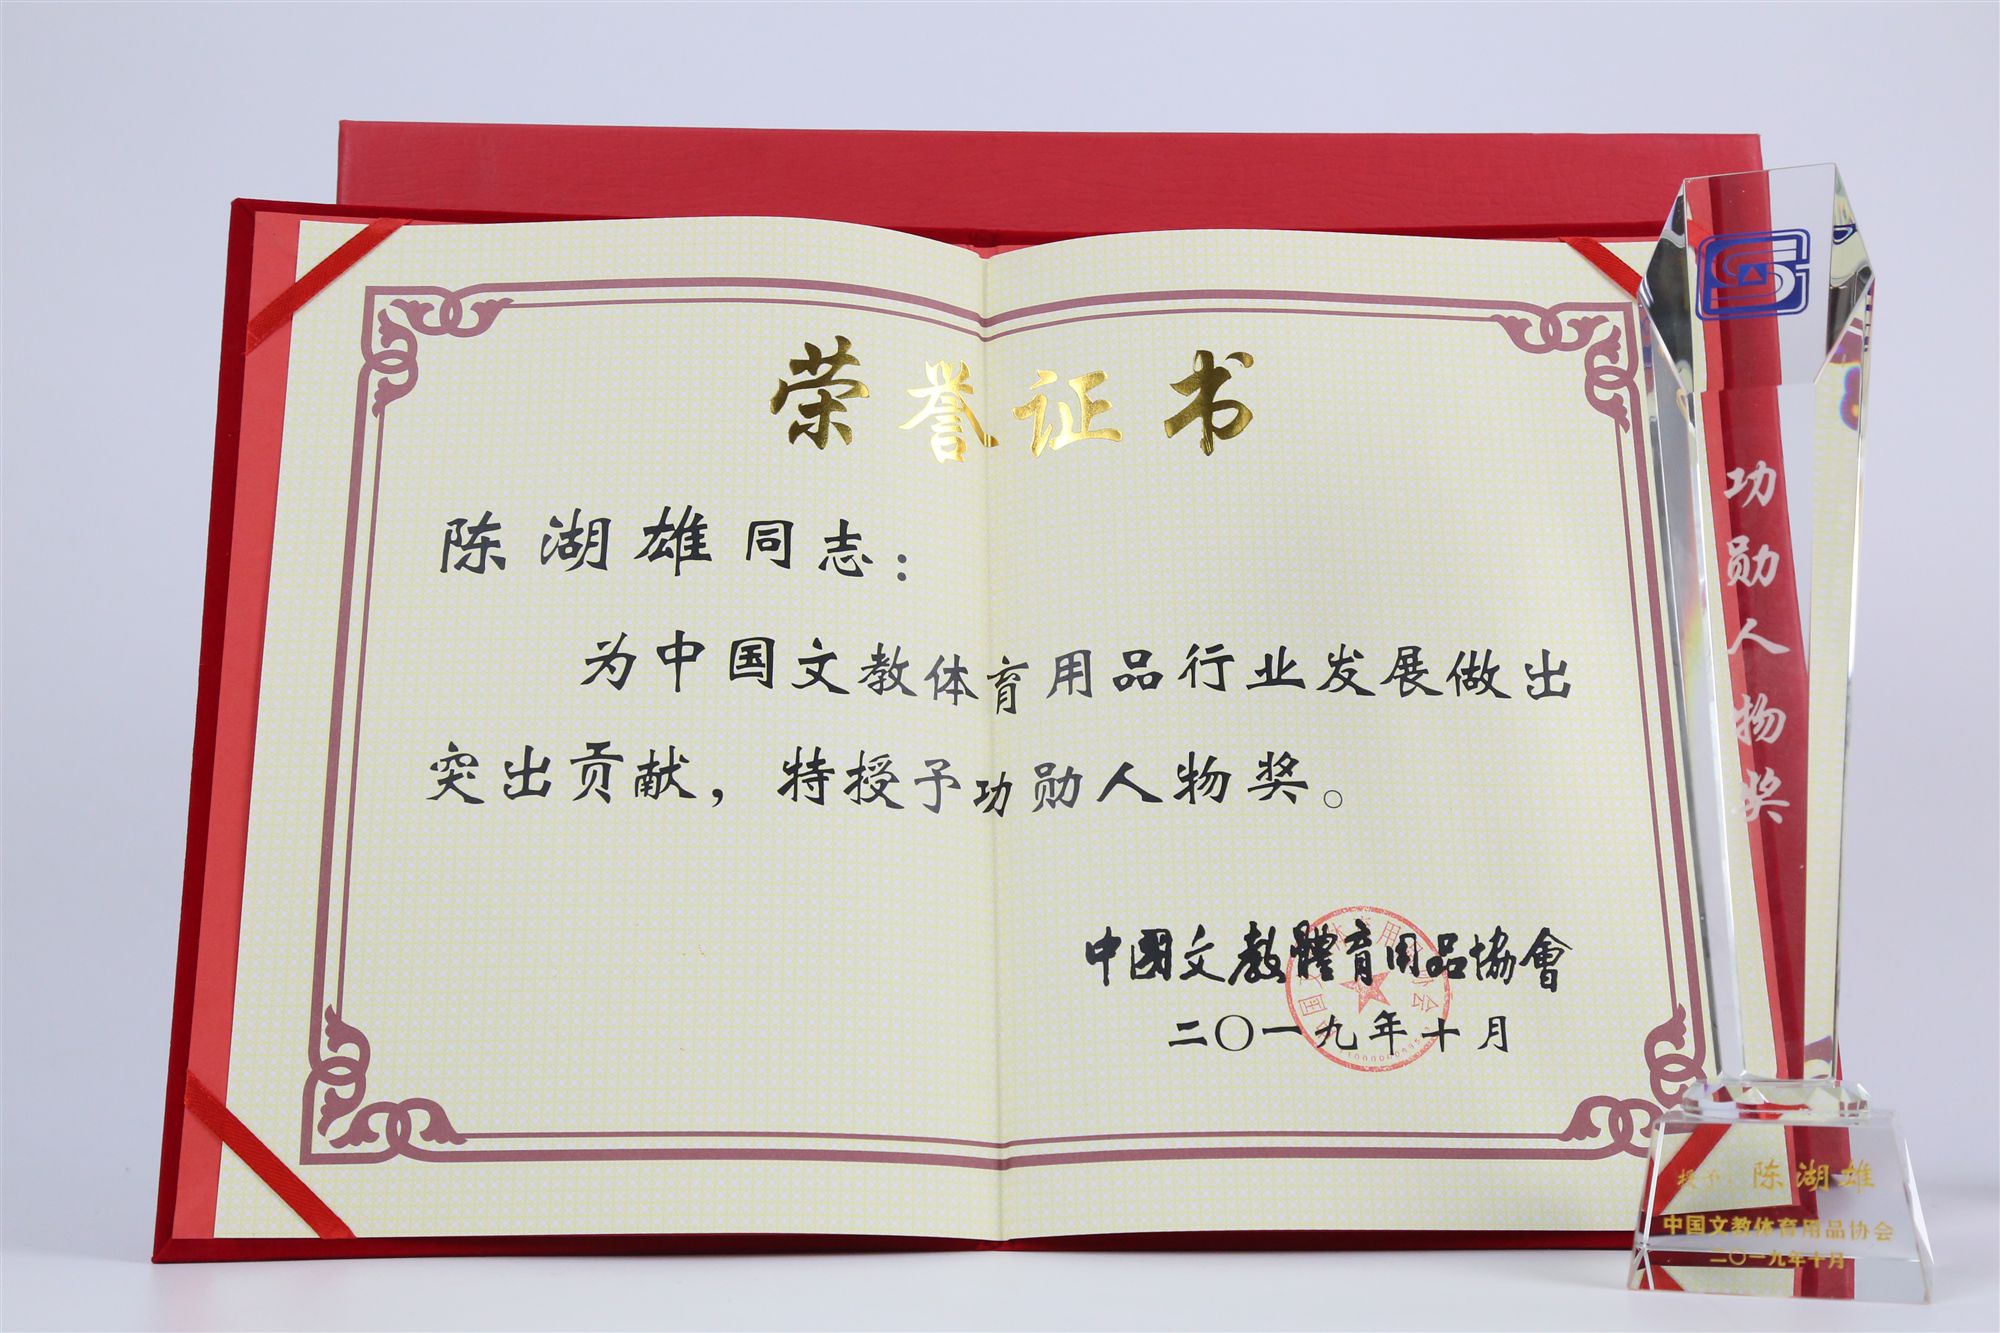 荣誉证书
陈湖雄同志：
为中国文教体育用品行业发展做出
突出贡献，特授予功勋人物奖。
中國文教體育用品協會
二〇一九年十月
功勋人物奖
授予：陈湖雄
中国文教体育用品协会
二〇一九年十月